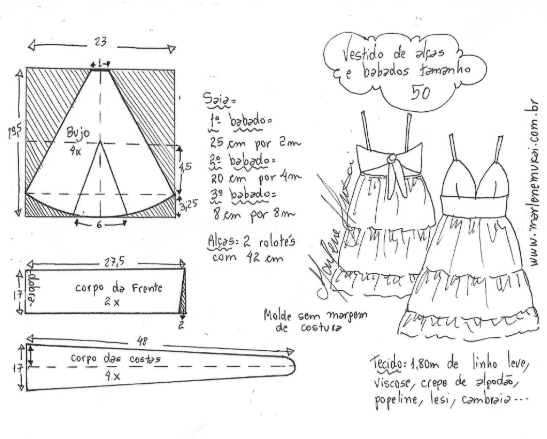 Vestido de alças
e babados tamanho
50
www.marlenemukai.com.br
23
1
19,5
Bujo
4x
4,5
3,25
6
Saia=
1º babado=
25 cm por 2m
2º babado=
20 cm por 4m
3º babado=
8 cm por 8m
Alças: 2 rolotês
com 42 cm
27,5
17
-dobra-
corpo da frente
2x
2
Molde sem margem
de costura
48
17
corpo das costas
4x
Marlene Mukai
Tecido: 1,80m de linho leve,
viscose, crepe de algodão,
popeline, lesi, cambraia...